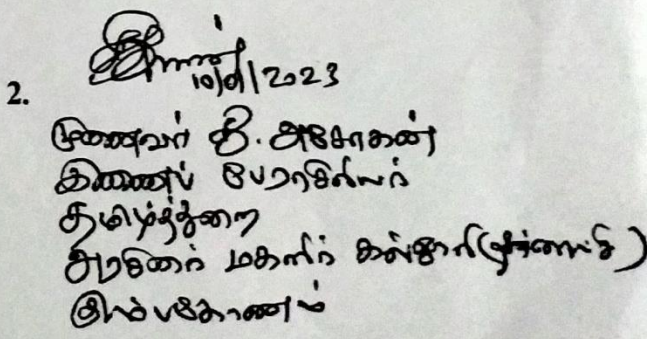 10/8/2023
2.
முனைவர் சி. அசோகன்
இணைப் பேராசிரியர்
தமிழ்த்துறை
அரசினர் மகளிர் கல்லூரி (தன்னாட்சி)
கும்பகோணம்